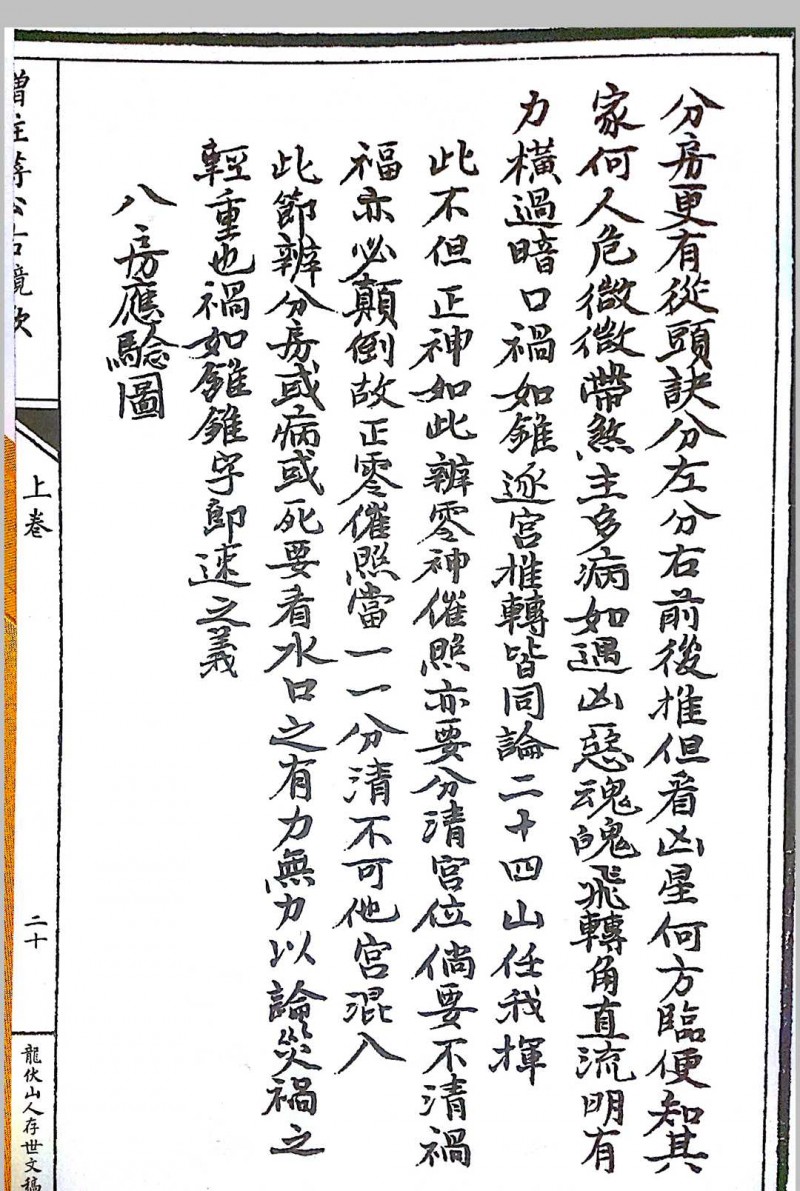 分房更有從頭訣分左分右前後推但看凶星何方臨便知其
家何人危微微帶煞主多病如遇凶惡魂魄飛轉角直流明有
力橫過暗口禍如錐逐宮推轉皆同論二十四山任我揮
此不但正神如此辨零神催照亦要分清宮位倘要不清禍
福亦必顛倒故正零催照當一一分清不可他宮混入
此節辨分房或病或死要看水口之有力無力以論災禍之
輕重也禍如錐錐字即速之義
八房應驗圖
上卷
二十
龍伏山人存世文稿